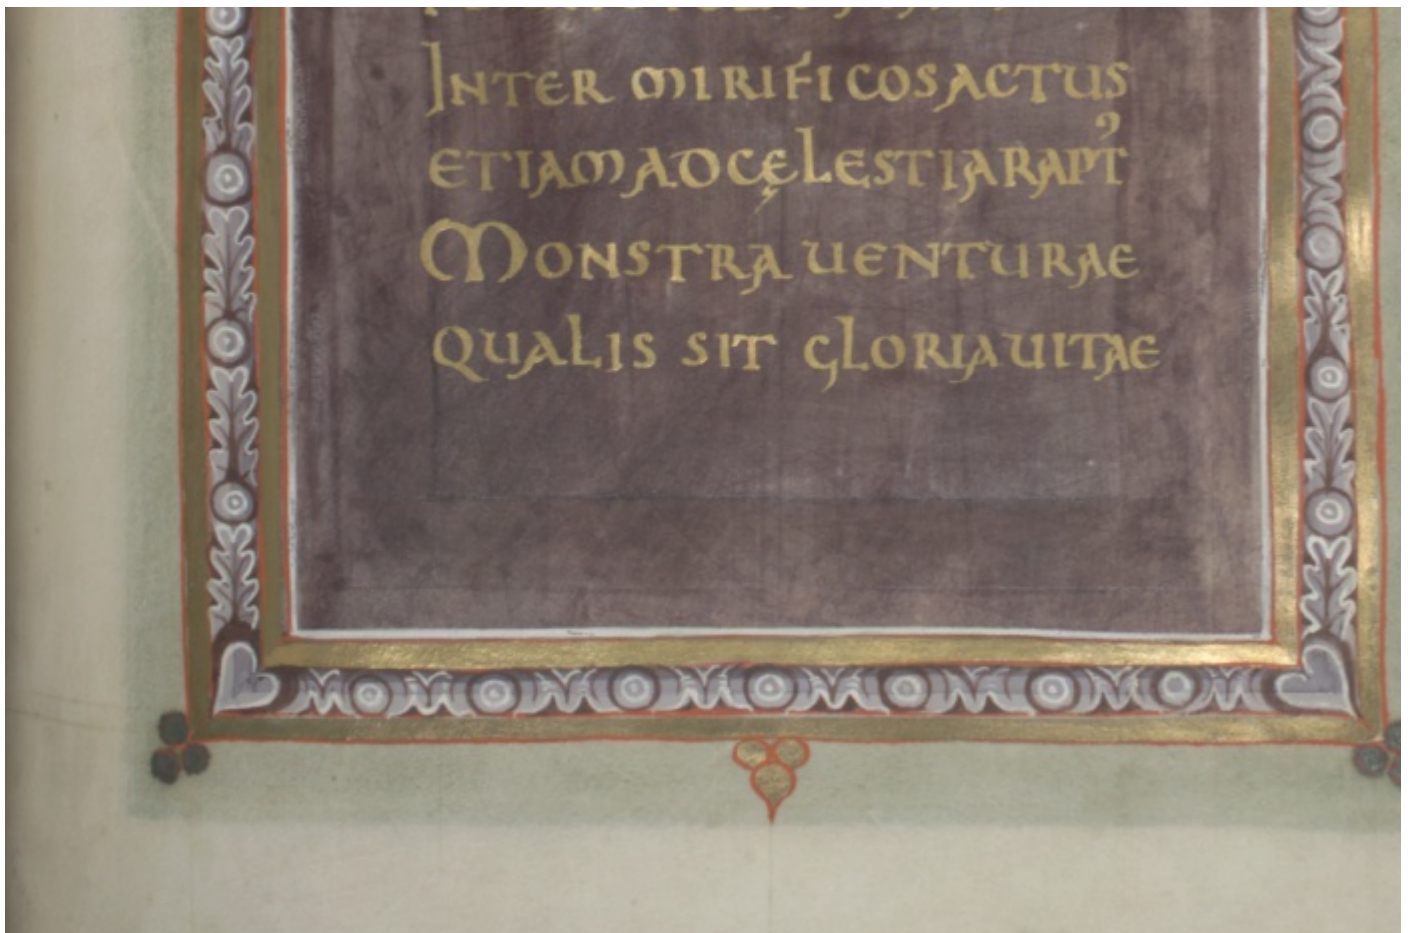 INTER MIRIFICOS ACTUS
ETIAM AD CĘLESTIA RAPT᾿
MONSTRA UENTURAE
QUALIS SIT GLORIA UITAE